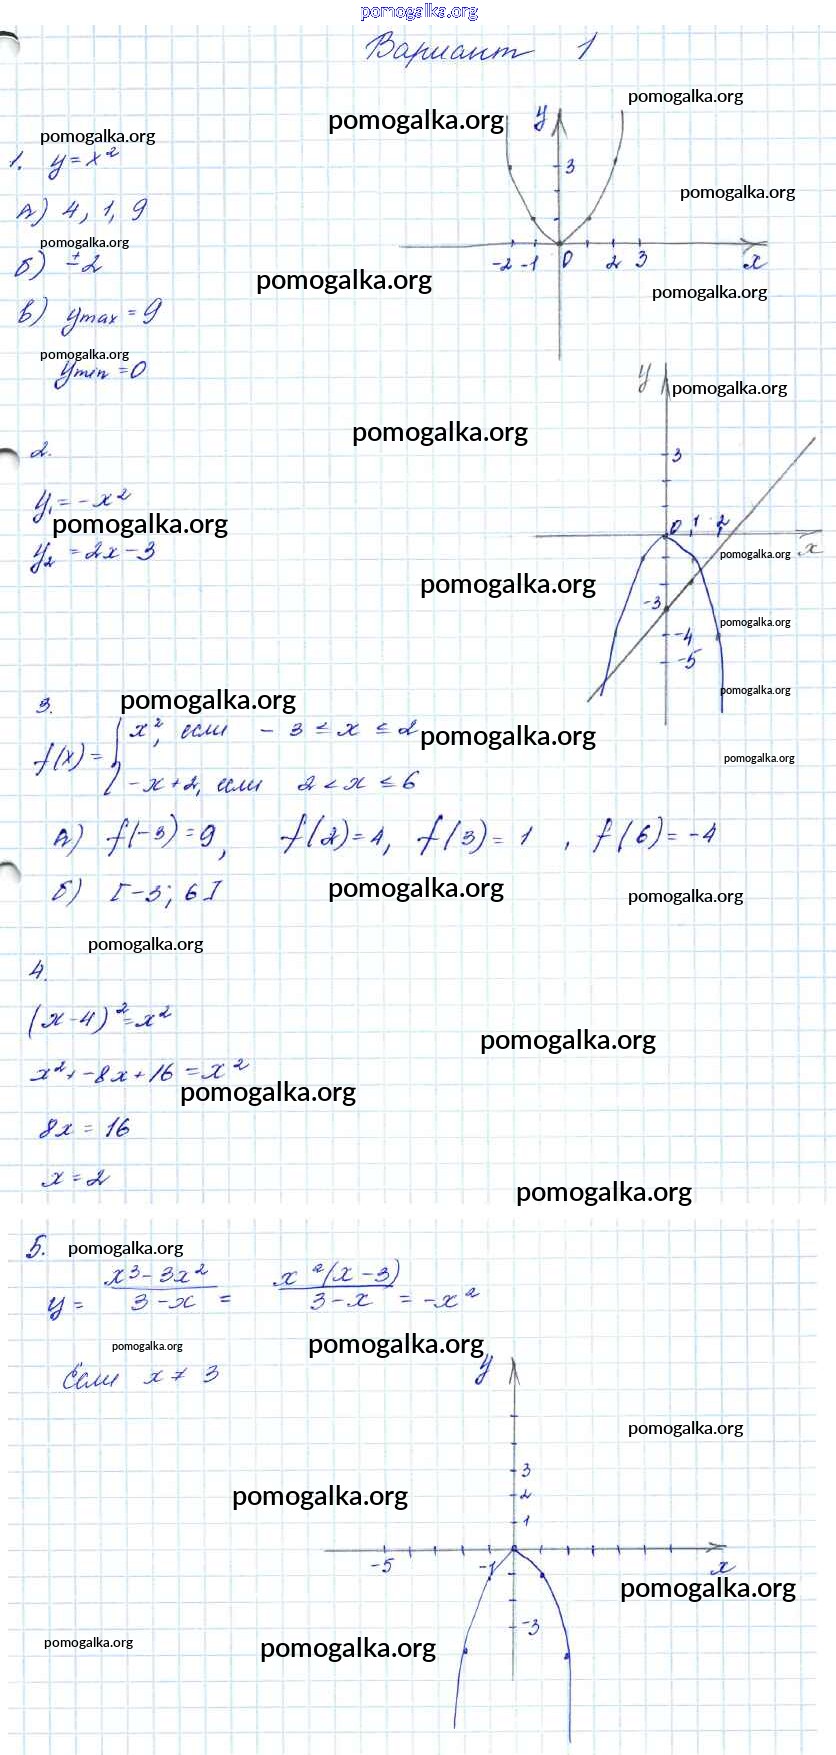 pomogalka.org
Вариант 1
pomogalka.org
pomogalka.org
pomogalka.org
1. y = x²
y
3
-2 -1 0 2 3 x
pomogalka.org
А) 4, 1, 9
pomogalka.org
Б) ±2
pomogalka.org
pomogalka.org
В) ymax = 9
pomogalka.org
ymin = 0
y
pomogalka.org
pomogalka.org
2.
3
y₁ = -x²
pomogalka.org
0 1 2
x
y₂ = 2x - 3
pomogalka.org
pomogalka.org
-3
pomogalka.org
-4
-5
pomogalka.org
3.
pomogalka.org
f(x) = { x², если -3 ≤ x ≤ 2
pomogalka.org
pomogalka.org
-x + 2, если 2 < x ≤ 6
А) f(-3) = 9, f(2) = 4, f(3) = 1, f(6) = -4
Б) [-3; 6]
pomogalka.org
pomogalka.org
pomogalka.org
4.
(x - 4)² = x²
pomogalka.org
x² + -8x + 16 = x²
pomogalka.org
8x = 16
x = 2
pomogalka.org
5.
pomogalka.org
y = (x³ - 3x²)/(3 - x) = x²(x - 3)/(3 - x) = -x²
pomogalka.org
pomogalka.org
Если x ≠ 3
y
pomogalka.org
3
2
1
pomogalka.org
-5 -1 x
pomogalka.org
-3
pomogalka.org
pomogalka.org